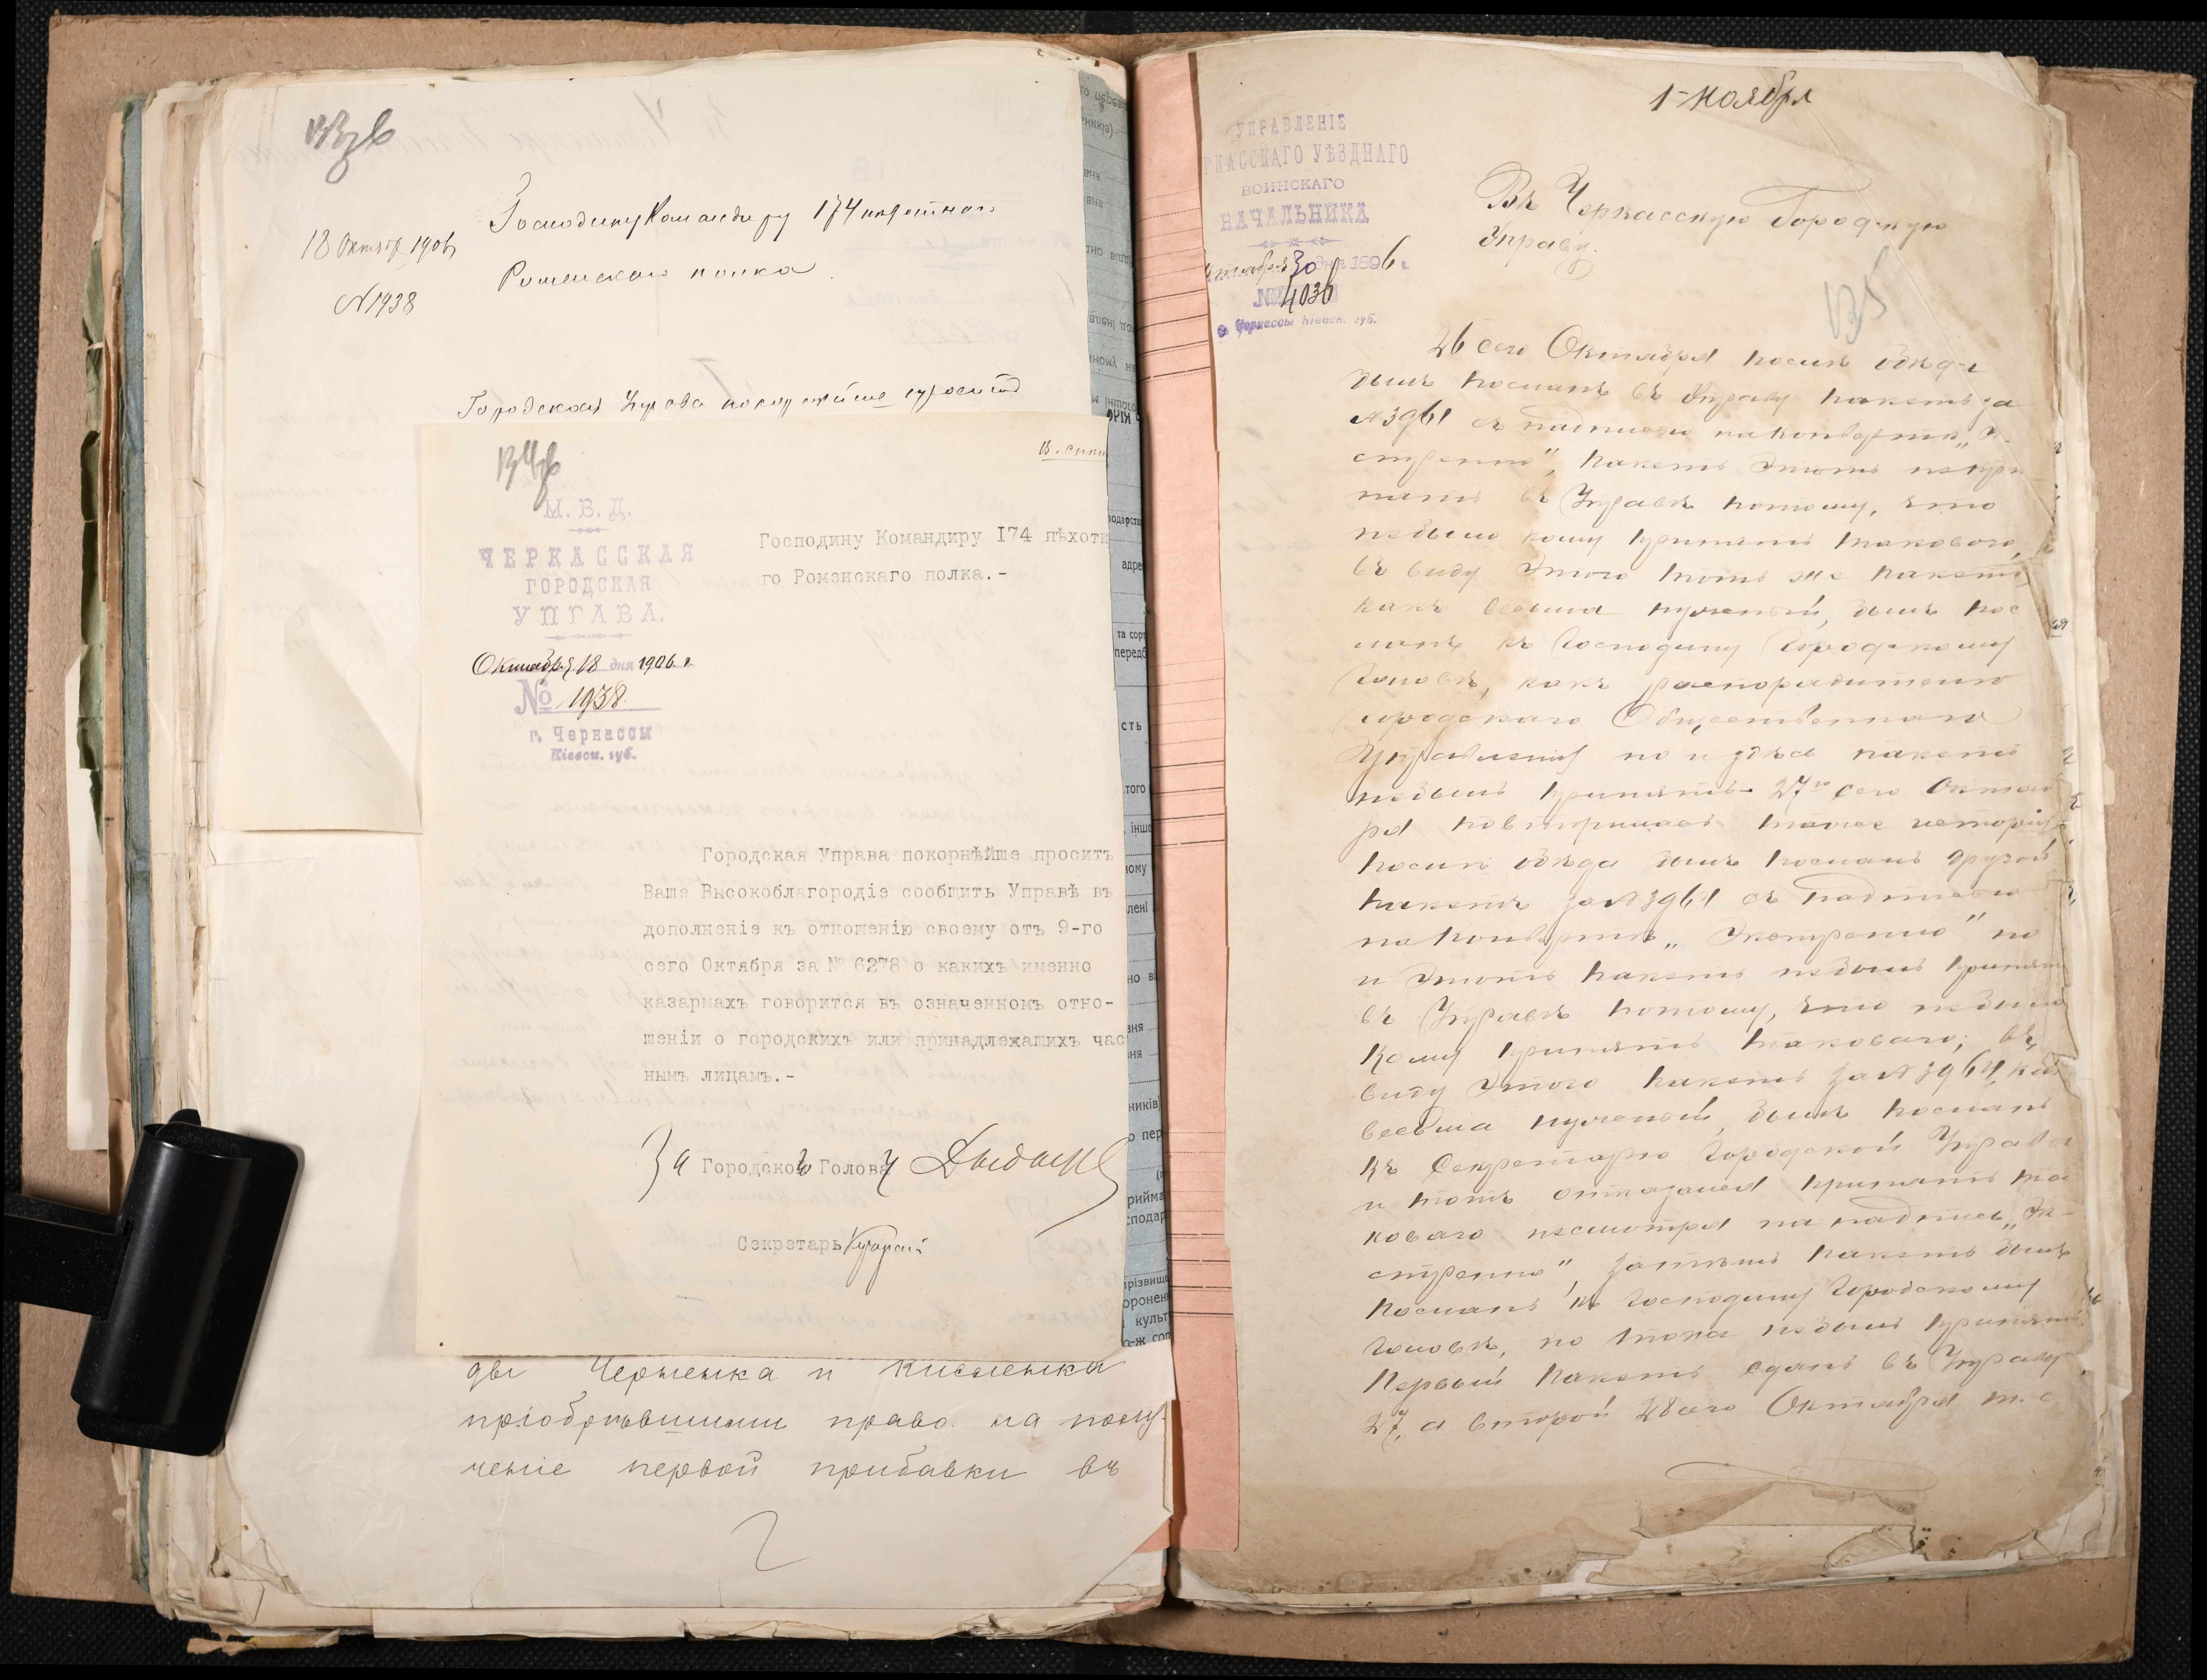 133 зв
18 Октяб. 1906
N 1938
Господину Командиру 174 пѣхотнаго
Роменскаго полка.
Городская Управа покорнѣйше проситъ
134 зв
М. В. Д.
ЧЕРКАССКАЯ
ГОРОДСКАЯ
УПРАВА.
Октября 18 дня 1906 г.
№ 1938.
г. Черкассы
Кіевск. губ.
Господину Командиру 174 пѣхотн
го Роменскаго полка.-
Городская Управа покорнѣйше проситъ
Ваше Высокоблагородіе сообщить Управѣ въ
дополненіе къ отношенію своему отъ 9-го
сего Октября за № 6278 о какихъ именно
казармахъ говорится въ означенномъ отно-
шеніи о городскихъ или принадлежащихъ час
нымъ лицамъ.-
За Городского Голову
Секретарь
ды Черненка и Кисленка
пріобрѣвшими право на полу-
ченіе первой прибавки въ
1 ноября
УПРАВЛЕНІЕ
РКАССКАГО УѢЗДНАГО
ВОИНСКАГО
НАЧАЛЬНИКА
ктября 30 дня 1896 г.
№ 4036
Черкассы Кіевск. губ.
Въ Черкасскую Городскую
Управу.
135
26 сего Октября послѣ обѣда
былъ посланъ въ Управу пакетъ за
№ 3961 съ надписью на конвертѣ „Эк-
стренно", пакетъ этотъ непри
нятъ въ Управѣ потому, что
небыло кому принять таковаго,
въ виду этого тотъ же пакетъ
какъ весьма нужный, былъ пос
ланъ къ Господину Городскому
Головѣ, какъ распорядителю
Городскаго Общественнаго
Управленія но и здѣсь пакетъ
небылъ принятъ. 27го сего Октяб
ря повторилась таже исторія,
послѣ обѣда былъ посланъ другой
пакетъ за № 3961 съ надписью
на конвертѣ „Экстренно" но
и этотъ пакетъ небылъ принят
въ Управѣ потому, что небыло
кому принять таковаго; въ
виду этого пакетъ за № 3964, как
весьма нужный, былъ посланъ
къ Секретарю Городской Управы
и тотъ отказался принять та
коваго несмотря на надпись „Эк-
стренно", затѣмъ пакетъ былъ
посланъ къ Господину Городскому
Головѣ, но тоже небылъ принятъ.
Первый пакетъ сданъ въ Управу
27, а второй 28 сего Октября т. е.